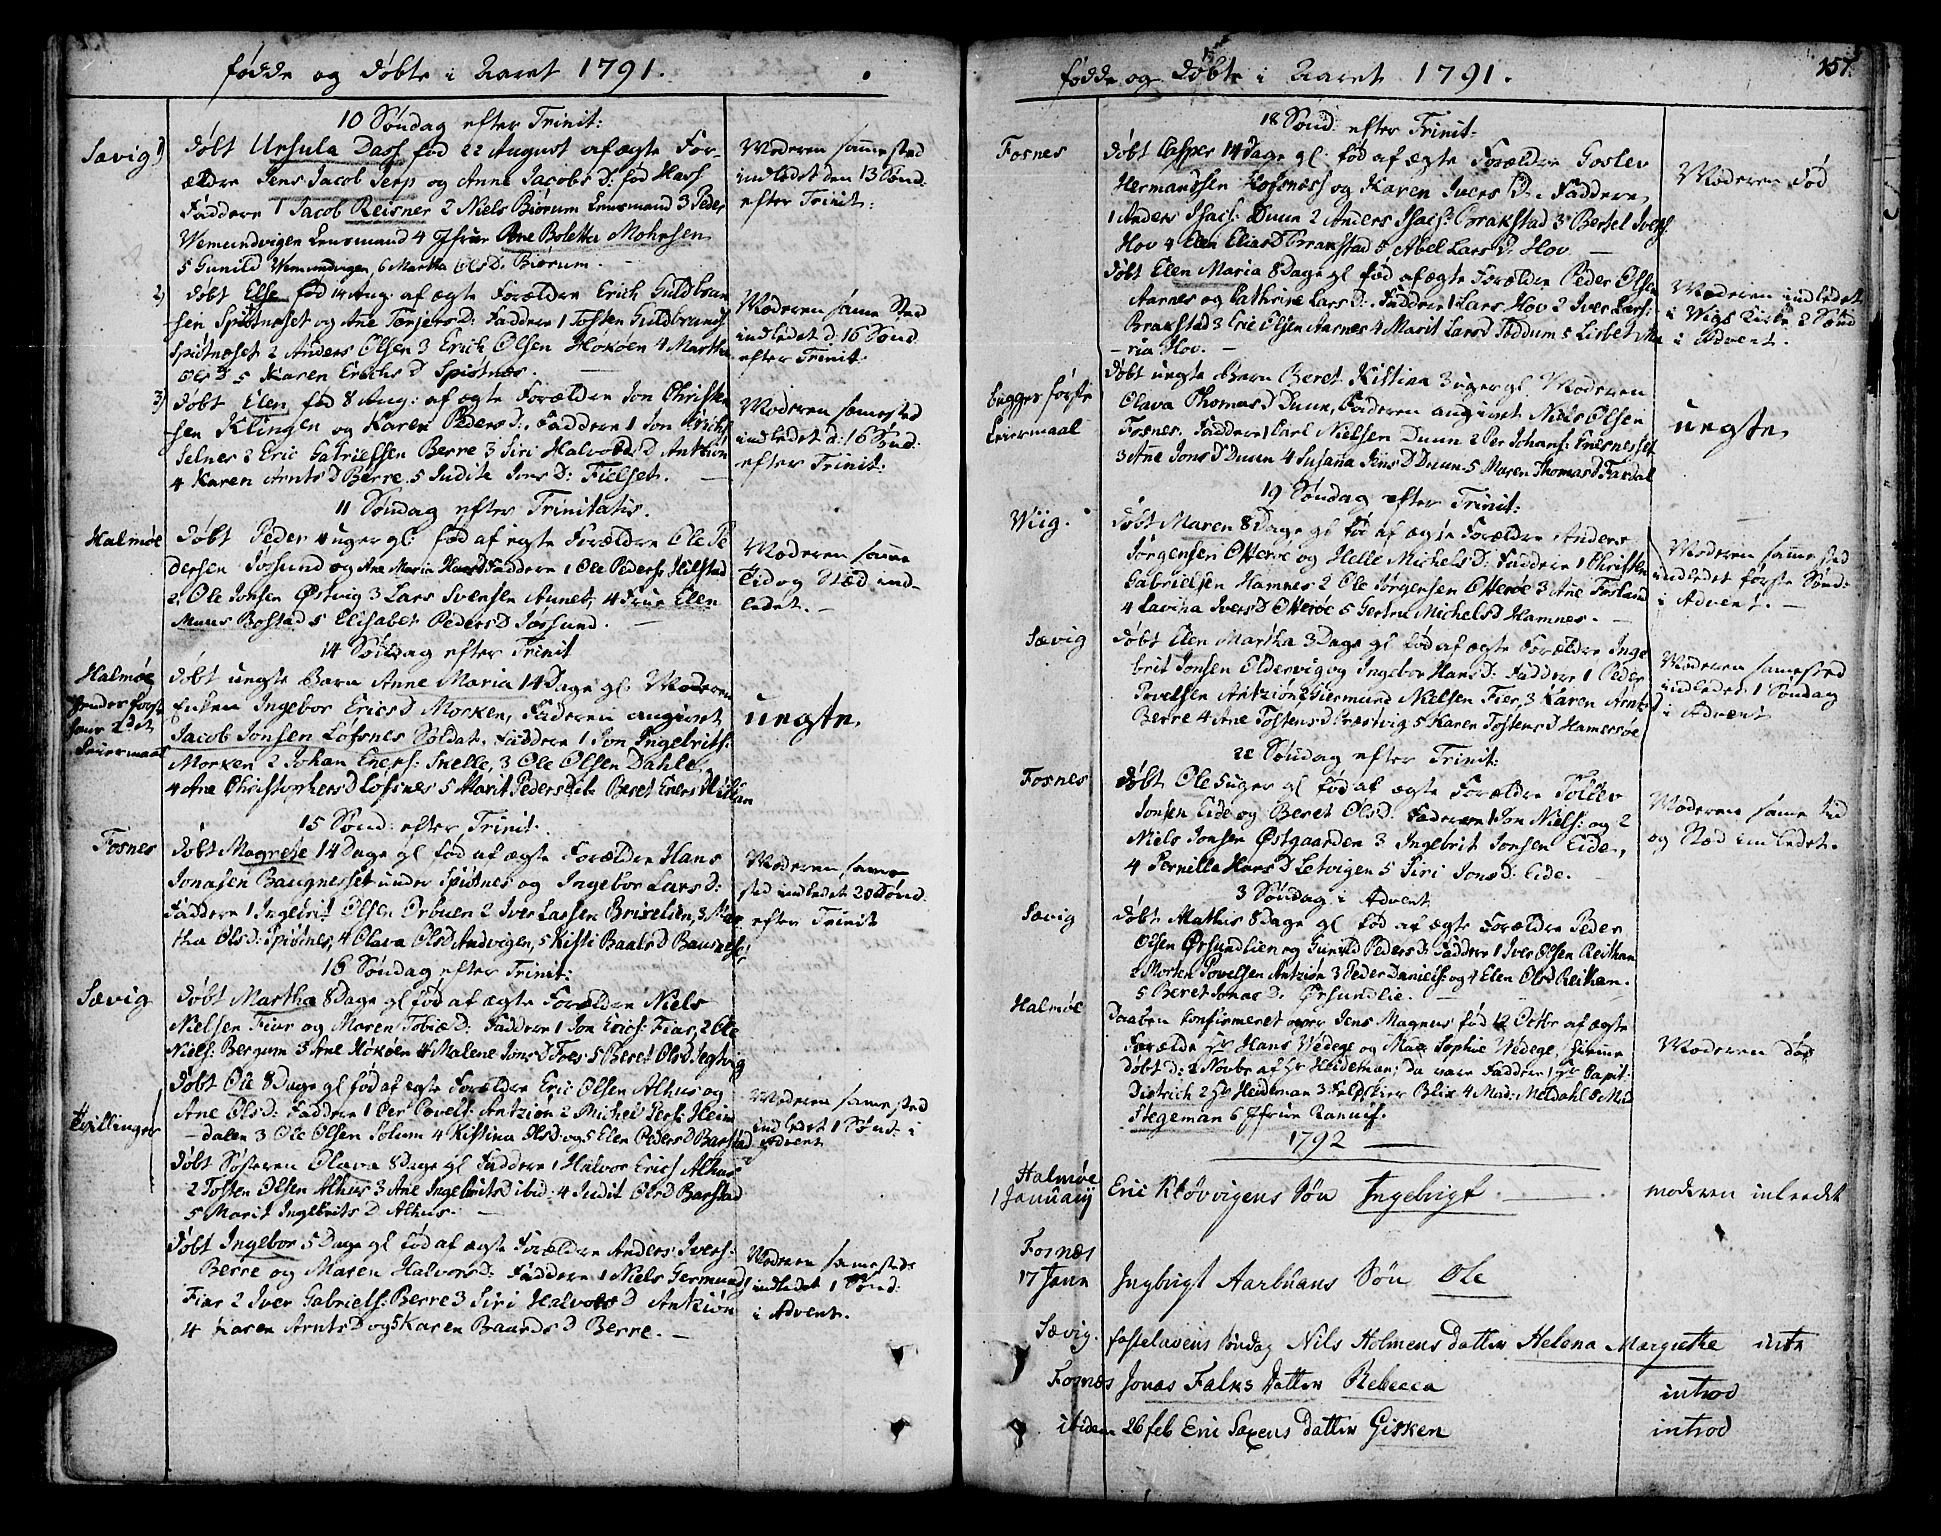 fødde og døbte i Aaret 1791.
10 Søndag efter Trinit:
Sævig 1) døbt Ursula Dass fød 22 August af ægte For-
ældre Jens Jacob Jersp og Anne Jacobs D: fød Hass
Faddere 1 Jacob Reisner 2 Niels Biørum Lensmand 3 Peder
Wemundvigen Lensmand 4 Jfrue Ane Boletta Mohrsen
5 Gunild Wemundvigen, 6 Martha Ols D: Biørum.
Moderen samme sted
indledet den 13 Sønd:
efter Trinit:
2) døbt Else fød 14 Aug: af ægte Forældre Erich Guldbran
sen Spiøtnæset og Ane Torgers D: Faddere 1 Tosten Guldbrands
Spiøtnæset 2 Anders Olsen 3 Erich Olsen Hokøen 4 Martha
Ols D 5 Karen Erichs D Spiøtnes.
Moderen same Sted
indledet d: 16 Sønd
efter Trinit:
3) døbt Elen fød 8 Aug: af ægte Forældre Jon Christen
sen Klingen og Karen Peders D: Faddere 1 Jon Erichs
Selnes 2 Eric Gabrielsen Berre 3 Siri Halvors D Antzión
4 Karen Arnts D Berre 5 Judite Jons D: Fielset.
Moderen samested
indledet d: 16 Sønd:
efter Trinit:
11 Søndag efter Trinitatis.
Halmøe
døbt Peder 4 uger gl: fød af ægte Forældre Ole Pe
dersen Jøssund og Ane Maria Hans D Faddere 1 Ole Peders: Hilstad
2 Ole Jonsen Østvig 3 Lars Svensen Aunet, 4 Frue Elen
Muus Bostad 5 Elisabet Peders D Jøssund.
Moderen samme
Tid og Stæd ind
ledet.
14 Søndag efter Trinit
Halmøe
døbt uægte Barn Anne Maria 14 Dage gl: Moderen
Enken Ingebor Erics D Morken, Faderen angivet
Jacob Jonsen Løfsnes Soldat. Faddere 1 Jon Ingebrits:
Morken 2 Johan Eners: Snelle, 3 Ole Olsen Dahle
4 Ane Christophers D Løfsnes 5 Marit Peders D Beret Eners D
hendes første
hans 2det
Leiermaal
uægte
15 Sønd: efter Trinit.
Fosnes
døbt Magrete 14 Dage gl fød af ægte Forældre Hans
Jonasen Baugnesset under Spiøtnes og Ingebor Lars D:
Faddere 1 Ingebrit Olsen Orbuen 2 Iver Larsen Brixelsen, 3 Mar
tha Ols D: Spiøtnes, 4 Olava Ols D Andvigen, 5 Kisti Baals D Baugnes:
Moderen samme
sted indledet 20 Sønd
efter Trinit
16 Søndag efter Trinit:
Sævig
døbt Martha 8 Dage gl fød af ægte Forældre Niels
Nielsen Fiar og Maren Tobiæ D: Faddere 1 Jon Erics: Fiar, 2 Ole
Niels: Bergum 3 Ane Hokøen 4 Malene Jons D Foes 5 Beret Ols D Jegtvig
Tvillinger
døbt Ole 8 Dage gl fød af ægte Forældre Eric Olsen Alhus og
Ane Ols D: Faddere 1 Per Povels: Antzión 2 Michel Pers: Heim
dalen 3 Ole Olsen Solum 4 Kistina Ols D og 5 Elen Peders D Barstad
døbt Søsteren Olava 8 Dage gl Faddere 1 Halvor Erics Alhus
2 Tosten Olsen Alhus 3 Ane Ingebrits D ibid: 4 Judit Ols D Barstad
5 Marit Ingebrits D Alhus.
Moderen samested
indledet 1 Sønd: i
Advent
døbt Ingebor 5 Dage gl fød af ægte Forældre Anders Ivers:
Berre og Maren Halvors D: Faddere 1 Niels Germund
Fiar 2 Iver Gabriels: Berre 3 Siri Halvors D Antzión
4 Karen Arnts D og 5 Karen Baards D Berre.
Moderen samesteds
indledet 1 Sønd:
i Advent.
fødde og døbte i Aaret 1791.
157.
18 Sønd: efter Trinit:
Fosnes
døbt Casper 14 Dage gl: fød af ægte Forældre Goslev
Hermandsen Hofsnæss og Karen Ivers D: Faddere
1 Anders Isacs: Duun 2 Anders Isacs: Brakstad 3 Bersel Ivers
Hov 4 Elen Elias D Brakstad 5 Abel Lars D: Hov
Moderen død
døbt Elen Maria 8 Dage gl fød af ægte Forældre Peder Olsen
Aarnes og Cathrine Lars D: Faddere 1 Lars Hov 2 Iver Lars:
Brakstad 3 Eric Elsen Aarnes 4 Marit Lars D Faddum 5 Lisbet Ma
ria Hov.
Moderen indledet
i Wigs Kirke 2 Sønd
i Advent.
døbt uægte Barn Beret Kistina 3 uger gl Moderen
Olava Thomas D Duun, Faderen angivet Niels Olsen
Fosnes. Faddere 1 Carl Nielsen Duun 2 Per Johans: Fresnesset
3 Ane Jons D Duun 4 Susana Jens D Duun 5 Maren Thomas D Fardal
Begges første
Leiermaal
uægte
19 Søndag efter Trinit:
Viig.
døbt Maren 8 Dage gl fød af ægte Forældre Anders
Jørgensen Otterøe og Helle Michels D: Faddere 1 Christen
Gabrielsen Hamnes 2 Ole Jørgensen Otterøe 3 Ane Fosland
4 Lavina Ivers D Otterøe 5 Gertru Michels D Hamnes.
Moderen samme sted
indledet første Sønd:
i Advent.
Sævig
døbt Elen Martha 3 Dage gl fød af ægte Forældre Inge
brit Jonsen Eldervig og Ingebor Hans D: Faddere 1 Peder
Povelsen Antzión 2 Giermund Nielsen Fier, 3 Karen Arnts D
Berre 4 Ane Tostens D Præstvig 5 Karen Tostens D Hamersøe
Moderen samested
indledet 1 Søndag
i Advent
22 Søndag efter Trinit:
Fosnes
døbt Ole 5 uger gl fød af ægte Forældre Tollev
Jonsen Eide og Beret Ols D: Faddere 1 Jon Niels: og 2
Niels Jonsen Østgaarden 3 Ingebrit Jonsen Eide,
4 Pernilla Hans D Letvigen 5 Siri Jons D: Eide.
Moderen same tid
og Stæd indledet.
3 Søndag i Advent
Sævig
døbt Mathus 8 Dage gl fød af ægte Forældre Peder
Olsen Ørsundlien og Gunild Peders D: Faddere 1 Iver Olsen Reithan
2 Morten Povelsen Antzión 3 Peder Daniels: og 4 Elen Ols D Reithan.
5 Beret Jonæ D. Ørsundlie.
Halmøe
Daaben Confirmeret over Jens Magnus fød 12 Octbr af ægte
Forældre Hr Hans Wedege og Mad Sophie Wedege hiemme
døbt d: 2 Novbr af Hr Heideman; da vare Faddere 1 Hr Capit:
Dietrich 2 Hr Heideman 3 Feldskier Blix 4 Mad: Meldahl 5 Mad
Stegeman 6 Jfrue Rannuf.
Moderen døe
1792
Halmøe
1 January Eric Kløvvigens Søn Ingebrigt
moderen inleedet
Fosnæs
17 Janu Ingbrigt Aarbuans Søn Ole
Sævig. fastelavens søndag Nils Holmens datter Helena Margrethe intr
Fosnæs Jonas Falks datter Rebecca introd
ibidem 26 feb Eric Saxens datter Gisken introd